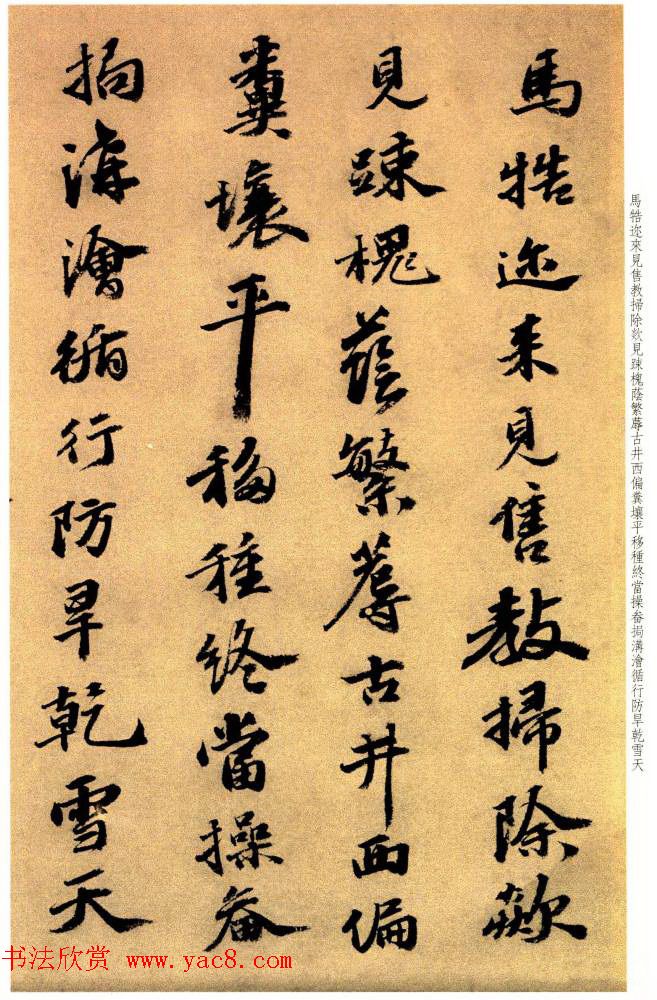 馬牿迩来見售教掃除歘
見踈槐蔭繁蓐古井西偏
糞壤平移種終當操畚
挶溝澮循行防旱乾雪天
馬牿迩來見售教掃除歘見踈槐蔭繁蓐古井西偏糞壤平移種終當操畚挶溝澮循行防旱乾雪天
书法欣赏 www.yac8.com